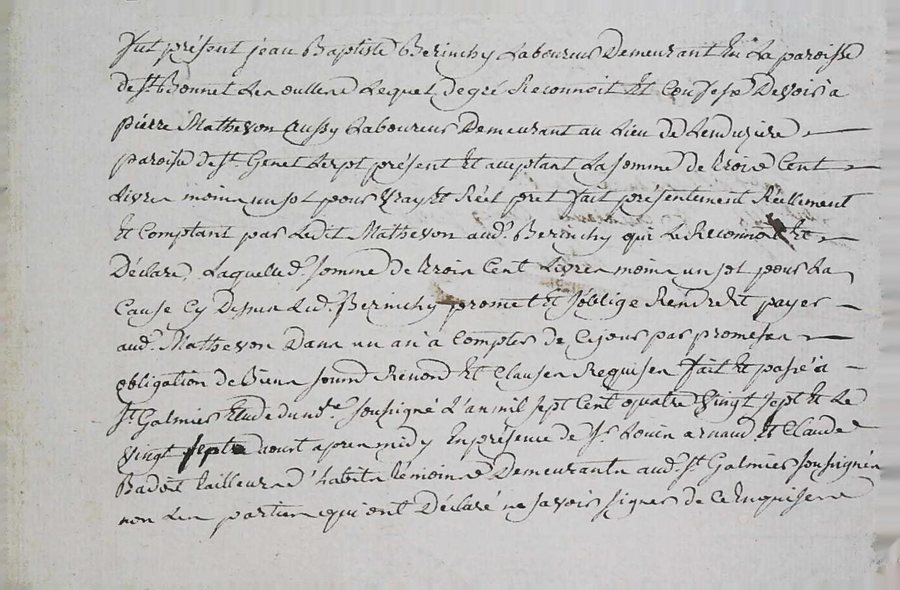 fut présent jean Baptiste Berinchy Laboureur Demeurant En La paroisse
de St. Bonnet Les oulles Lequel de gré Reconnoit Et Confesse Devoir a
pierre Mathevon aussy Laboureur Demeurant au Lieu de
paroisse de St. Genet Lerpt présent Et acceptant La somme de trois Cent
Livres moins un sol pour Vray Et Réel pret fait présentement Réellement
Et Comptant par Ledit Mathevon aud. Berinchy qui Le Reconnoit Et
Déclare, Laquelle d. somme de trois Cent Livres moins un sol pour La
Cause Cy Dessus Led. Berinchy promet Et s'oblige Rendre Et payer
aud. Mathevon Dans un an a Compter de Ce jour par promesses
obligation de Biens soumd Renond Et Clauses Requises fait Et passé a
St. Galmier Etude du nore. soussigné L'an mil sept Cent quatre Vingt sept Et Le
Vingt sept aoust apres midy En présence de Sr. Louis arnaud Et Claude
Badoit tailleurs d'habits témoins Demeurants aud. St. Galmier soussignés
non Les parties qui ont Déclaré ne savoir signer de Ce Enquises